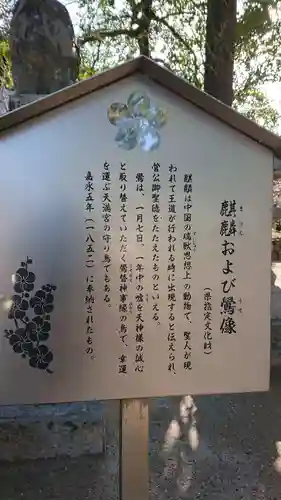 麒麟および鷽像
きりん
うそ
（県指定文化財）
麒麟は中国の瑞獣思想上の動物で、聖人が現
ずいじゅう
われて王道が行われる時に出現すると伝えられ、
菅公御聖徳をたたえたものといえる。
鷽は、一月七日、一年中の嘘を天神様の誠心
うそ
と取り替えていただく鷽替神事縁の鳥で、幸運
を運ぶ天満宮の守り鳥でもある。
嘉永五年（一八五二）に奉納されたもの。